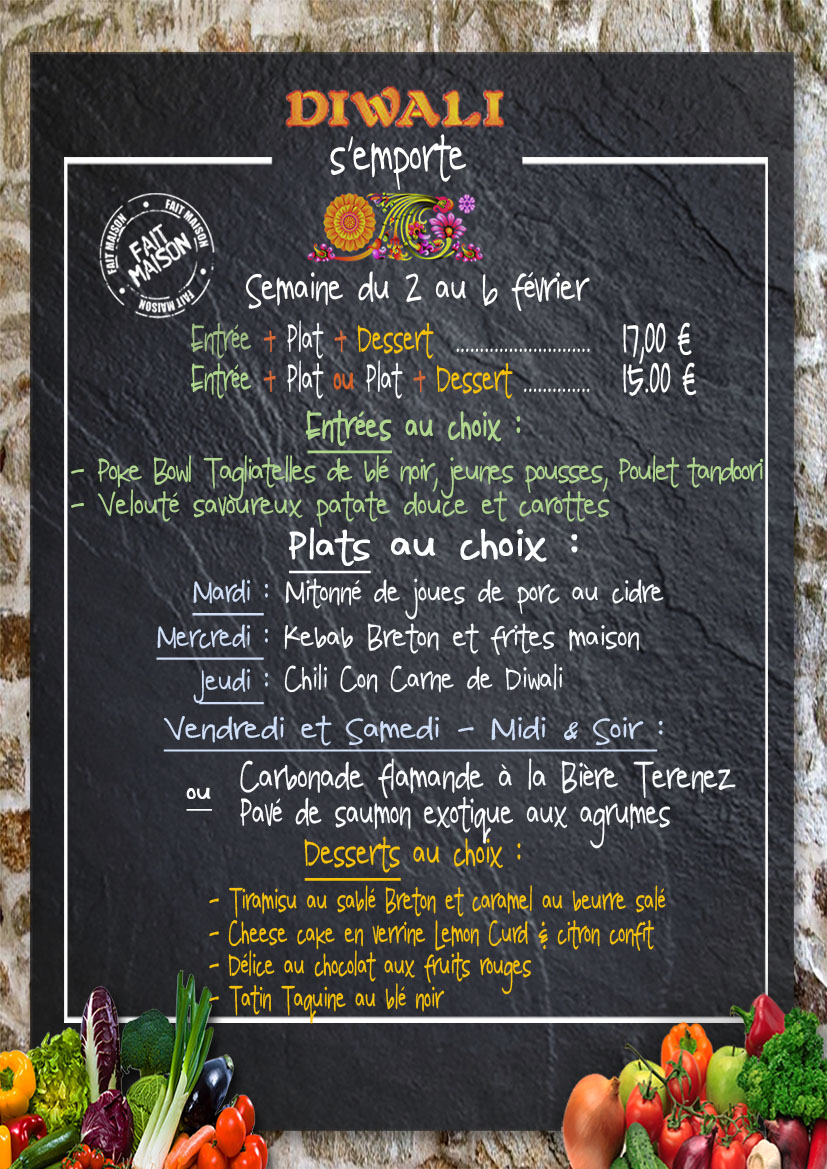 DIWALI
s'emporte
FAIT MAISON
FAIT MAISON
FAIT MAISON
FAIT
MAISON
Semaine du 2 au 6 février
Entrée + Plat + Dessert ............................ 17,00 €
Entrée + Plat ou Plat + Dessert .............. 15.00 €
Entrées au choix :
- Poke Bowl Tagliatelles de blé noir, jeunes pousses, Poulet tandoori
- Velouté savoureux patate douce et carottes
Plats au choix :
Mardi : Mitonné de joues de porc au cidre
Mercredi : Kebab Breton et frites maison
Jeudi : Chili Con Carne de Diwali
Vendredi et Samedi - Midi & Soir :
Carbonade flamande à la Bière Terenez
ou
Pavé de saumon exotique aux agrumes
Desserts au choix :
- Tiramisu au sablé Breton et caramel au beurre salé
- Cheese cake en verrine Lemon Curd & citron confit
- Délice au chocolat aux fruits rouges
- Tatin Taquine au blé noir